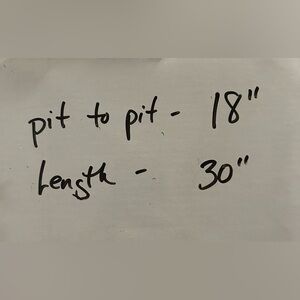 pit to pit - 18"
Length - 30"